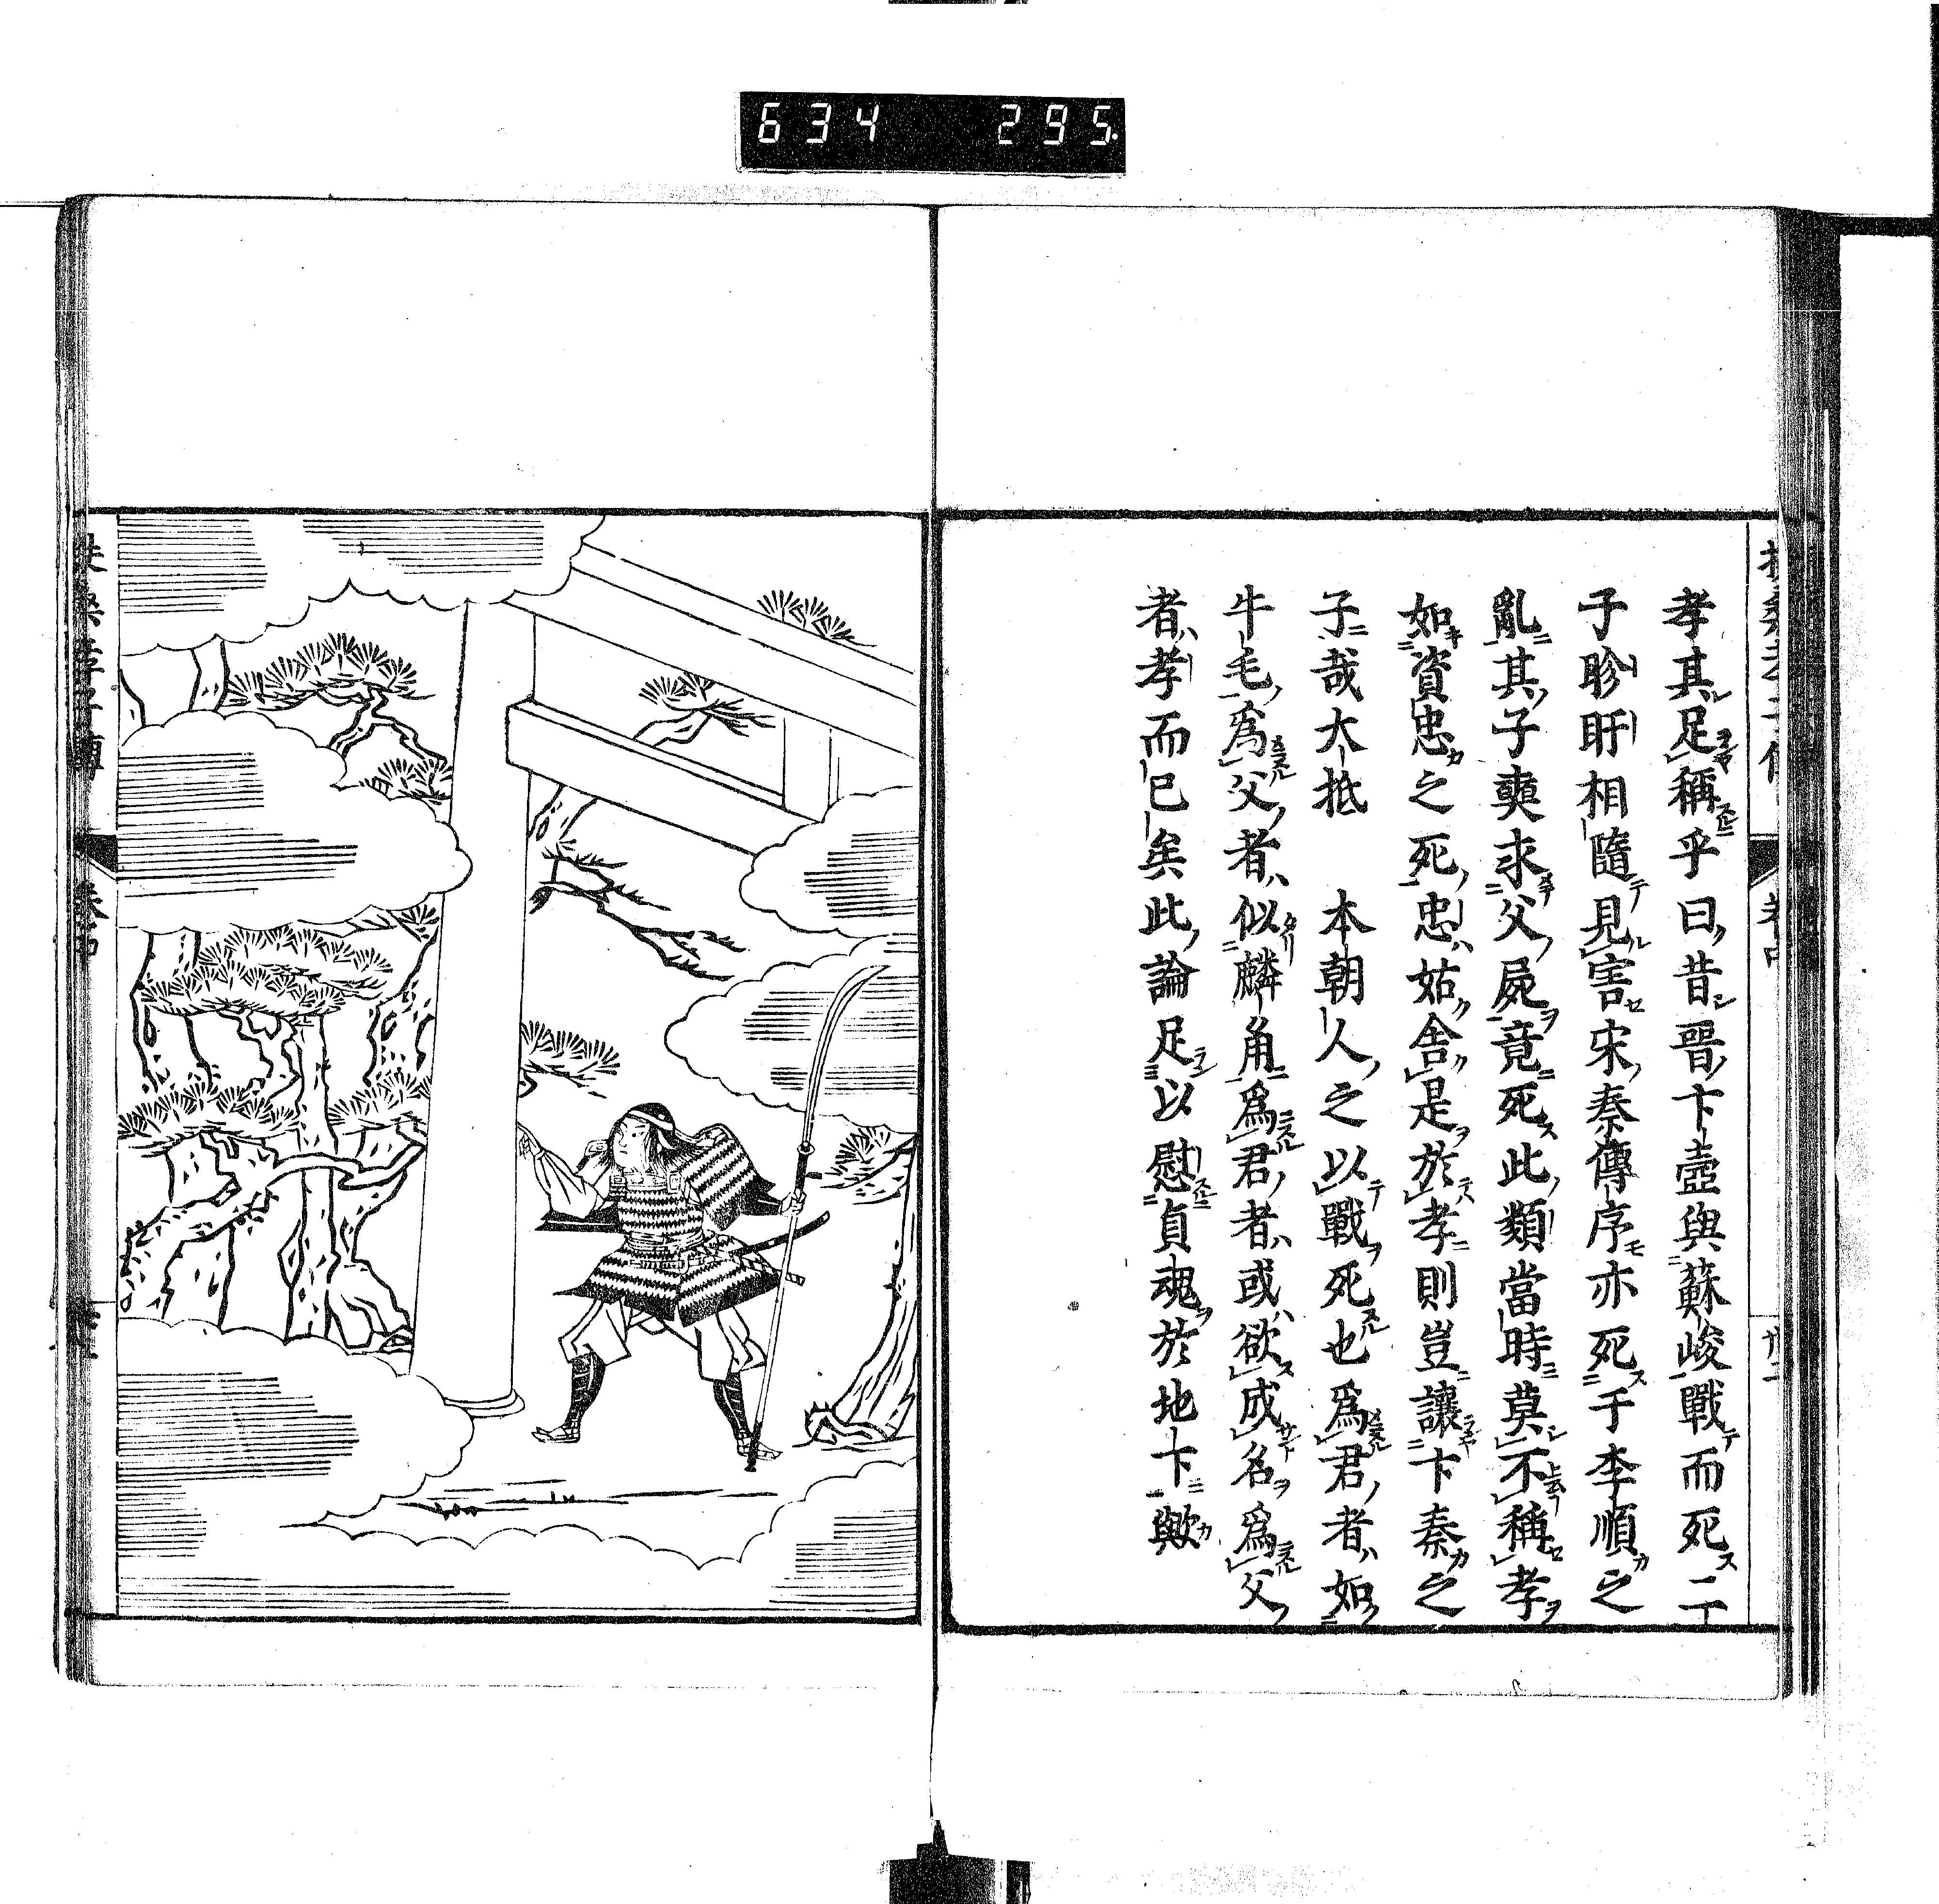 634 295
孝其足稱乎曰昔晉卞壼與蘇峻戰而死二
子眕盱相隨見害宋秦傳序亦死于李順之
亂其子奭求父屍竟死此類當時莫不稱孝
如資忠之死忠姑舍是於孝則豈讓卞秦之
子哉大抵　本朝人之以戰死也爲君者如
牛毛爲父者似麟角爲君者或欲成名爲父
者孝而已矣此論足以慰貞魂於地下歟